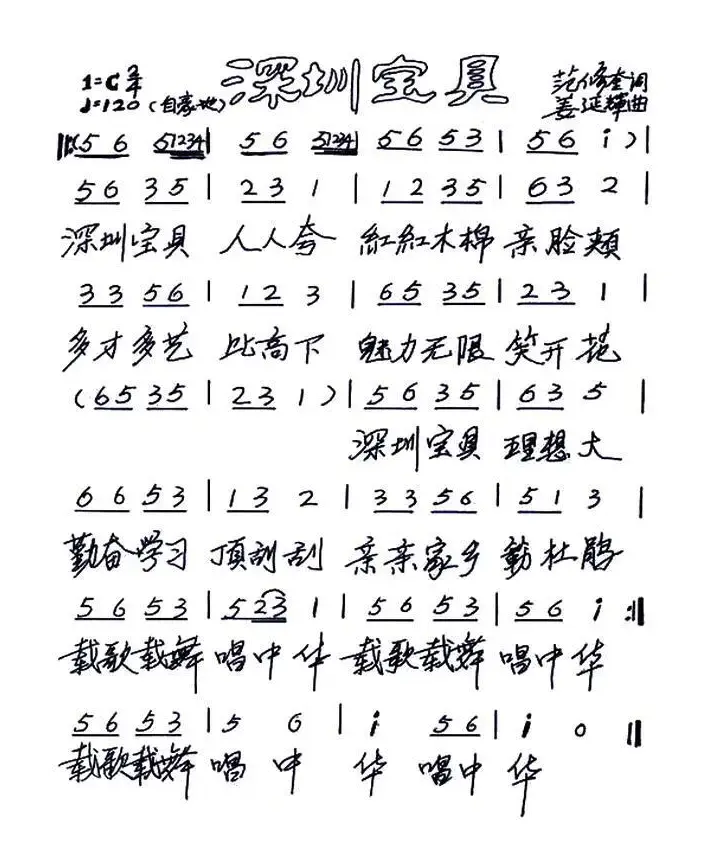 深圳宝贝
1=C 2/4
♩=120（自豪地）
范修奎词
姜延辉曲
‖:(5 6 51234 | 5 6 51234 | 56 53 | 56 i ) |
56 35 | 23 1 | 12 35 | 63 2 |
深圳宝贝 人人夸 紅紅木棉 亲脸颊
33 56 | 12 3 | 65 35 | 23 1 |
多才多艺 比高下 魅力无限 笑开花
(65 35 | 23 1 ) | 56 35 | 63 5 |
深圳宝贝 理想大
66 53 | 13 2 | 33 56 | 51 3 |
勤奋学习 頂刮刮 亲亲家乡 杜鹃
56 53 | 523 1 | 56 53 | 56 i :‖
载歌载舞 唱中华 载歌载舞 唱中华
56 53 | 5 6 | i 56 | i 0 ‖
载歌载舞 唱 中 华 唱中 华